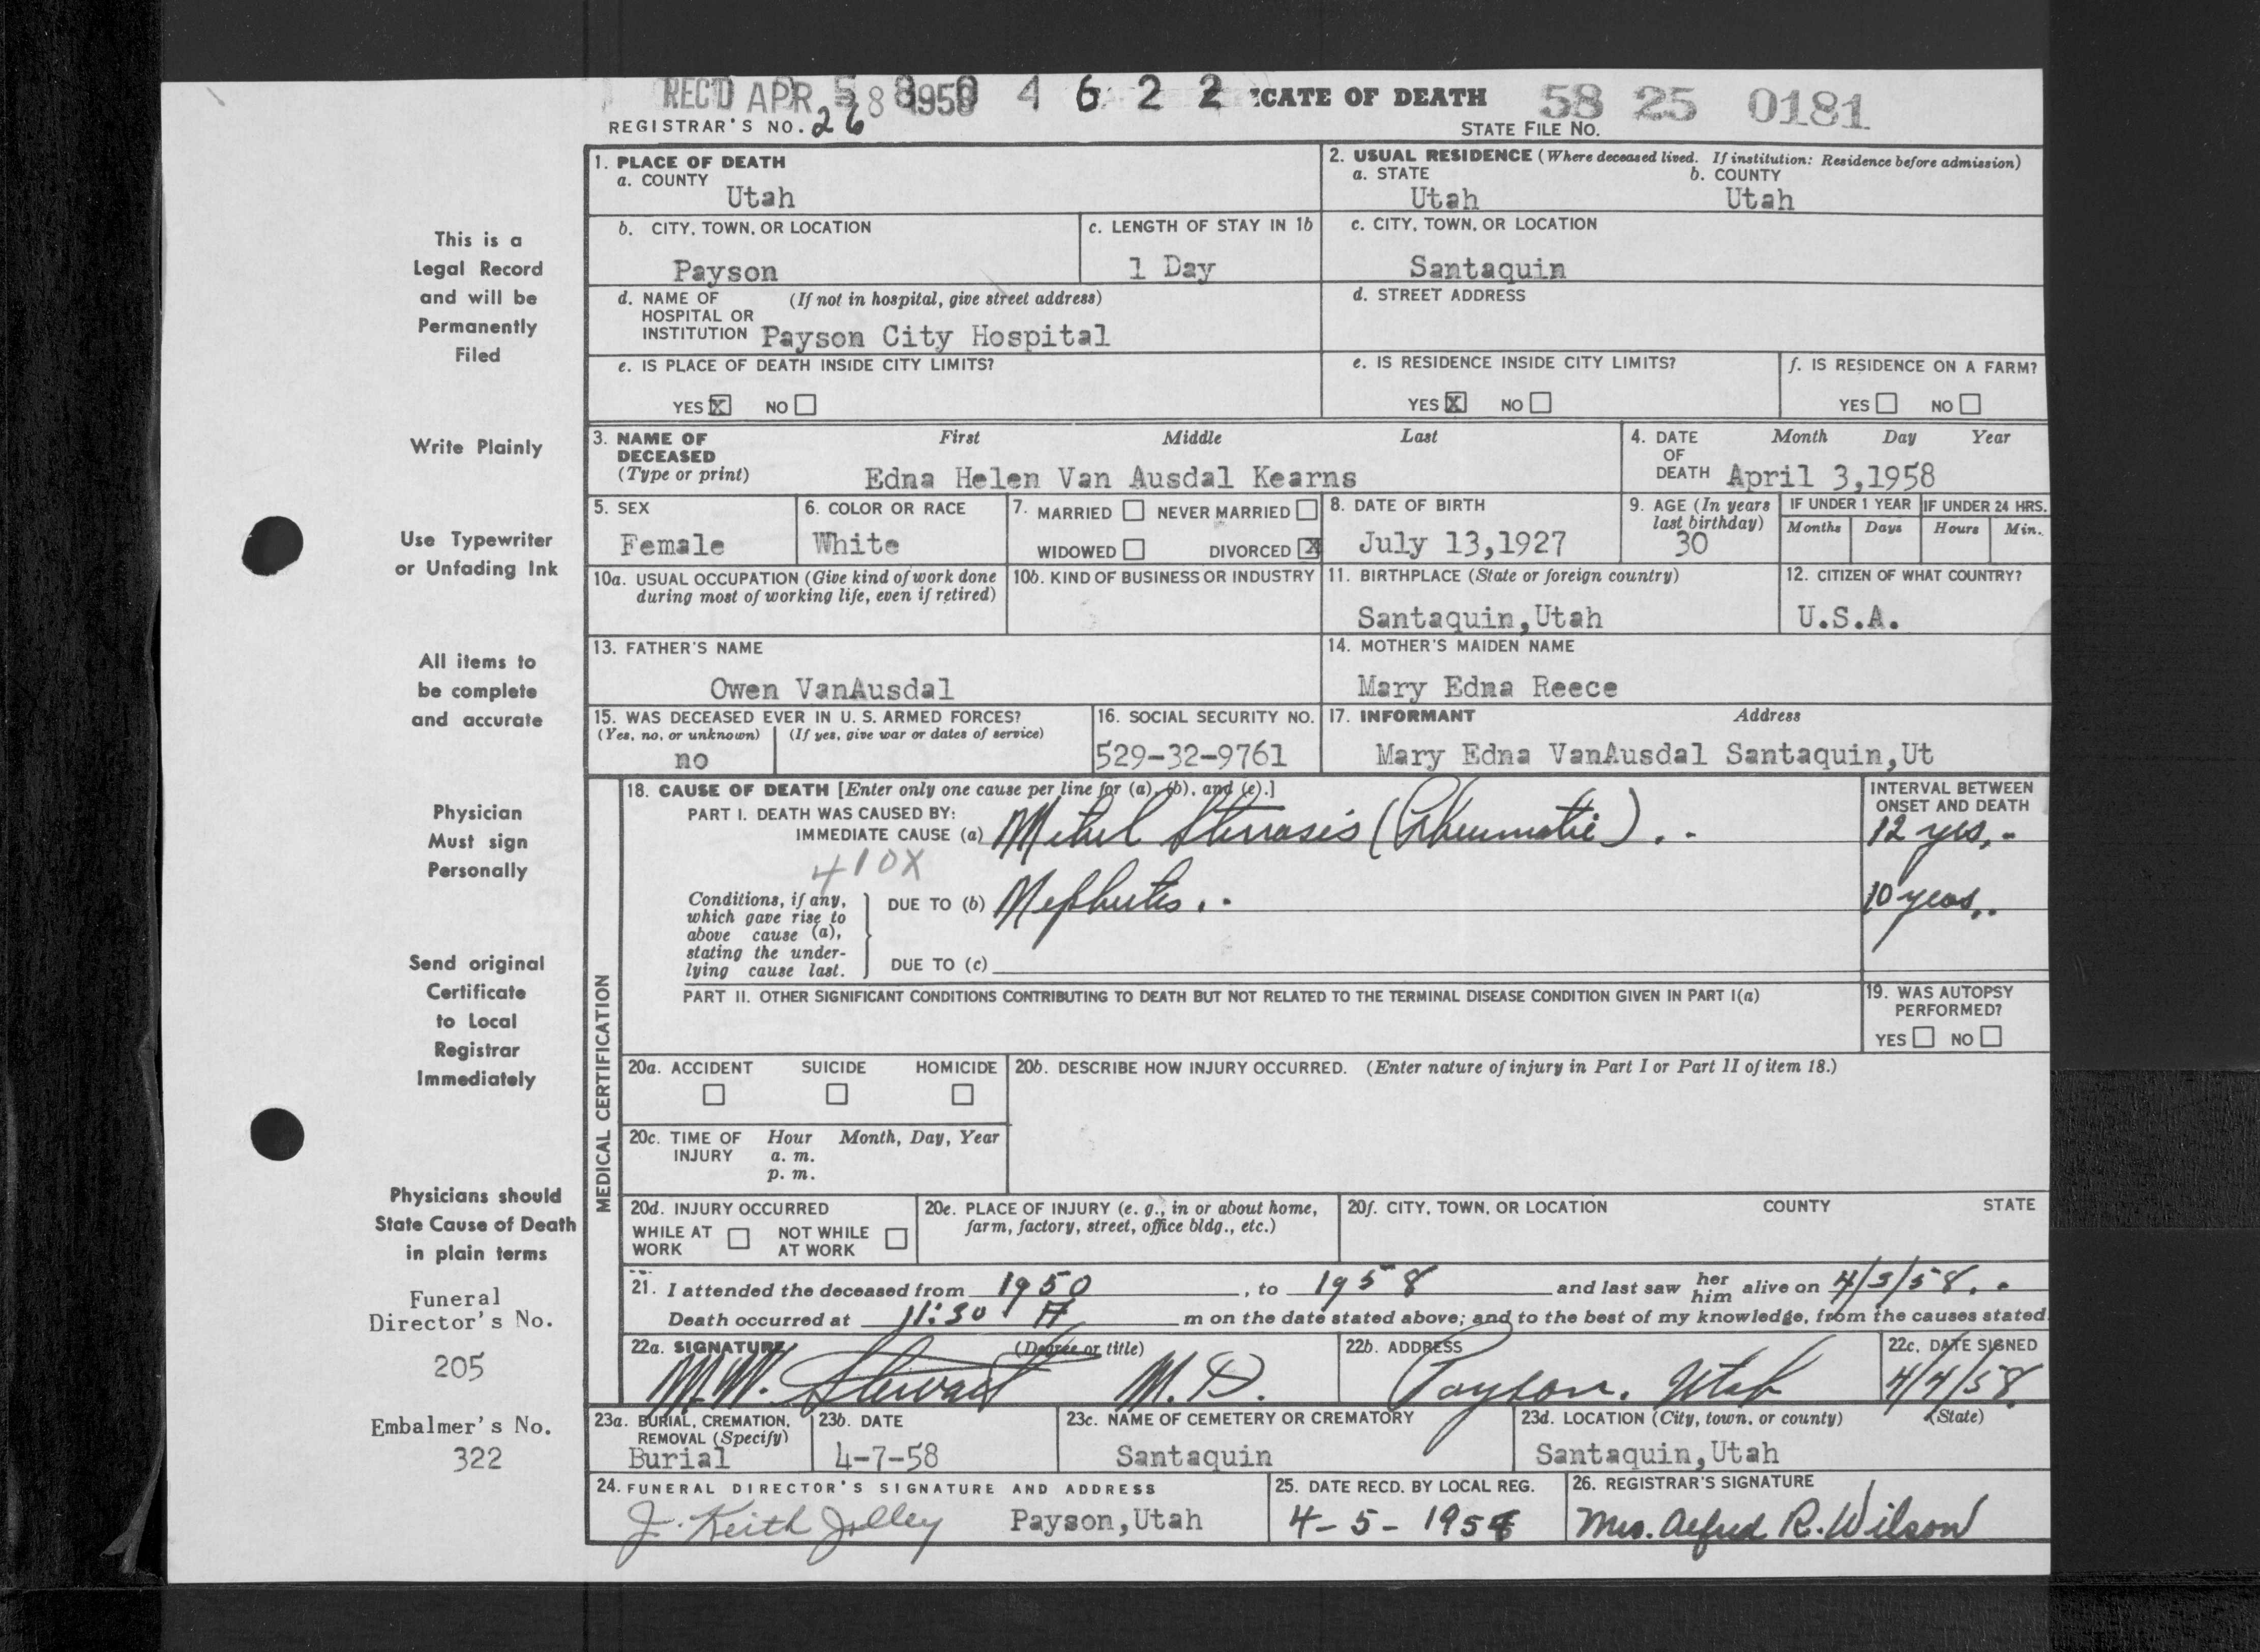 REC'D APR 8 1958 58 0 4 6 2 2 CATE OF DEATH 58 25 0181
REGISTRAR'S NO. 26 STATE FILE NO.
1. PLACE OF DEATH
a. COUNTY
Utah
2. USUAL RESIDENCE (Where deceased lived. If institution: Residence before admission)
a. STATE b. COUNTY
Utah Utah
b. CITY, TOWN, OR LOCATION
Payson
c. LENGTH OF STAY IN 1b
1 Day
c. CITY, TOWN, OR LOCATION
Santaquin
d. NAME OF (If not in hospital, give street address)
HOSPITAL OR
INSTITUTION Payson City Hospital
d. STREET ADDRESS
e. IS PLACE OF DEATH INSIDE CITY LIMITS?
YES X NO
e. IS RESIDENCE INSIDE CITY LIMITS?
YES X NO
f. IS RESIDENCE ON A FARM?
YES NO
3. NAME OF First Middle Last
DECEASED
(Type or print) Edna Helen Van Ausdal Kearns
4. DATE Month Day Year
OF
DEATH April 3,1958
5. SEX
Female
6. COLOR OR RACE
White
7. MARRIED NEVER MARRIED
WIDOWED DIVORCED X
8. DATE OF BIRTH
July 13,1927
9. AGE (In years
last birthday)
30
IF UNDER 1 YEAR IF UNDER 24 HRS.
Months Days Hours Min.
10a. USUAL OCCUPATION (Give kind of work done
during most of working life, even if retired)
10b. KIND OF BUSINESS OR INDUSTRY
11. BIRTHPLACE (State or foreign country)
Santaquin,Utah
12. CITIZEN OF WHAT COUNTRY?
U.S.A.
13. FATHER'S NAME
Owen VanAusdal
14. MOTHER'S MAIDEN NAME
Mary Edna Reece
15. WAS DECEASED EVER IN U. S. ARMED FORCES?
(Yes, no, or unknown) (If yes, give war or dates of service)
no
16. SOCIAL SECURITY NO.
529-32-9761
17. INFORMANT Address
Mary Edna VanAusdal Santaquin,Ut
MEDICAL CERTIFICATION
18. CAUSE OF DEATH [Enter only one cause per line for (a), (b), and (c).]
PART I. DEATH WAS CAUSED BY:
IMMEDIATE CAUSE (a) Mitral Stenosis (Rheumatic)
410X
Conditions, if any,
which gave rise to
above cause (a),
stating the under-
lying cause last.
DUE TO (b) Nephritis
DUE TO (c)
INTERVAL BETWEEN
ONSET AND DEATH
12 yrs.
10 years
PART II. OTHER SIGNIFICANT CONDITIONS CONTRIBUTING TO DEATH BUT NOT RELATED TO THE TERMINAL DISEASE CONDITION GIVEN IN PART I(a)
19. WAS AUTOPSY
PERFORMED?
YES NO
20a. ACCIDENT SUICIDE HOMICIDE
20b. DESCRIBE HOW INJURY OCCURRED. (Enter nature of injury in Part I or Part II of item 18.)
20c. TIME OF Hour Month, Day, Year
INJURY a. m.
p. m.
20d. INJURY OCCURRED
WHILE AT NOT WHILE
WORK AT WORK
20e. PLACE OF INJURY (e. g., in or about home,
farm, factory, street, office bldg., etc.)
20f. CITY, TOWN, OR LOCATION COUNTY STATE
21. I attended the deceased from 1950, to 1958 and last saw her him alive on 4/3/58.
Death occurred at 11:30 A m on the date stated above; and to the best of my knowledge, from the causes stated
22a. SIGNATURE (Degree or title)
M.W. Stewart M.D.
22b. ADDRESS
Payson, Utah
22c. DATE SIGNED
4/4/58
23a. BURIAL, CREMATION,
REMOVAL (Specify)
Burial
23b. DATE
4-7-58
23c. NAME OF CEMETERY OR CREMATORY
Santaquin
23d. LOCATION (City, town, or county) (State)
Santaquin,Utah
24. FUNERAL DIRECTOR'S SIGNATURE AND ADDRESS
J. Keith Jolley Payson,Utah
25. DATE RECD. BY LOCAL REG.
4-5-1958
26. REGISTRAR'S SIGNATURE
Mrs. Alfred R. Wilson
This is a
Legal Record
and will be
Permanently
Filed
Write Plainly
Use Typewriter
or Unfading Ink
All items to
be complete
and accurate
Physician
Must sign
Personally
Send original
Certificate
to Local
Registrar
Immediately
Physicians should
State Cause of Death
in plain terms
Funeral
Director's No.
205
Embalmer's No.
322